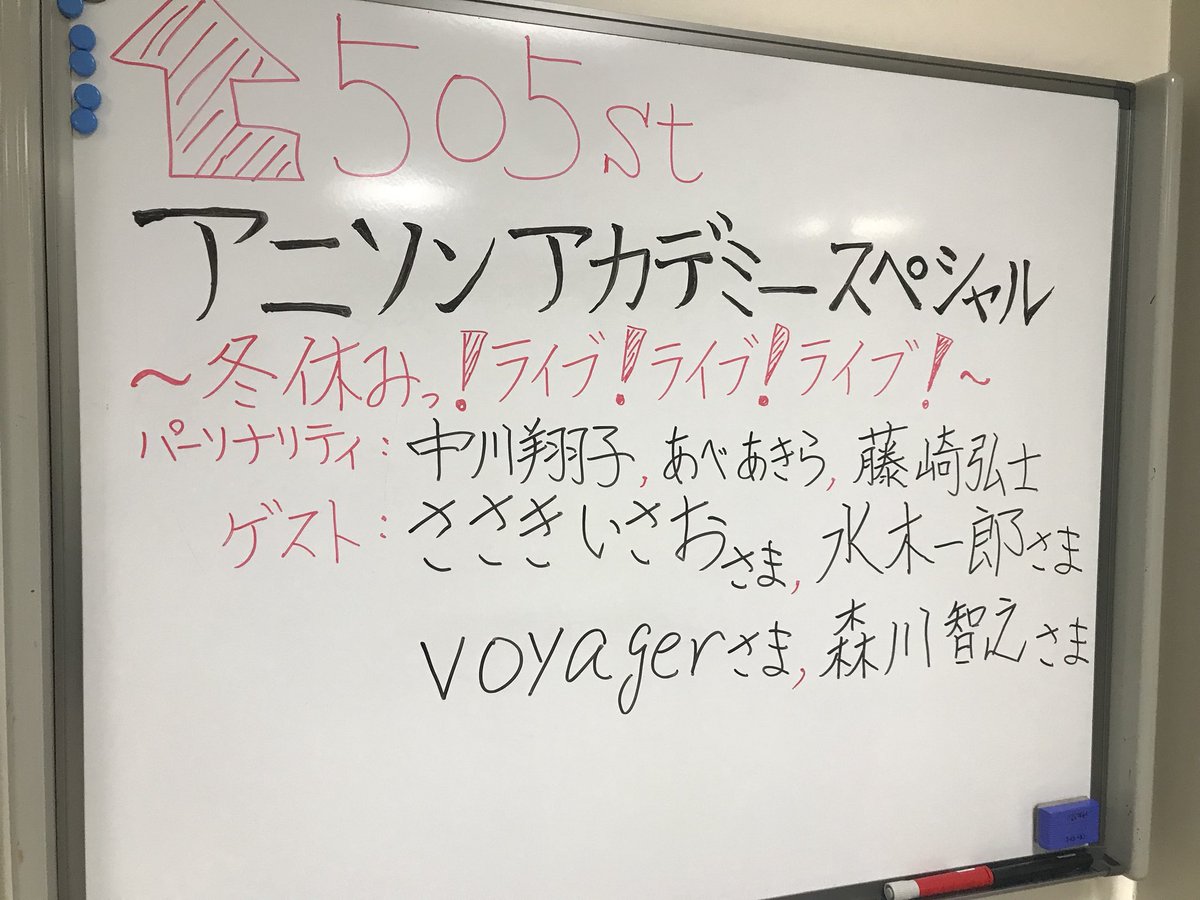 505st
アニソンアカデミースペシャル
～冬休みっ!ライブ!ライブ!ライブ!～
パーソナリティ:中川翔子,あべあきら,藤崎弘士
ゲスト:ささきいさおさま,水木一郎さま
voyagerさま,森川智之さま